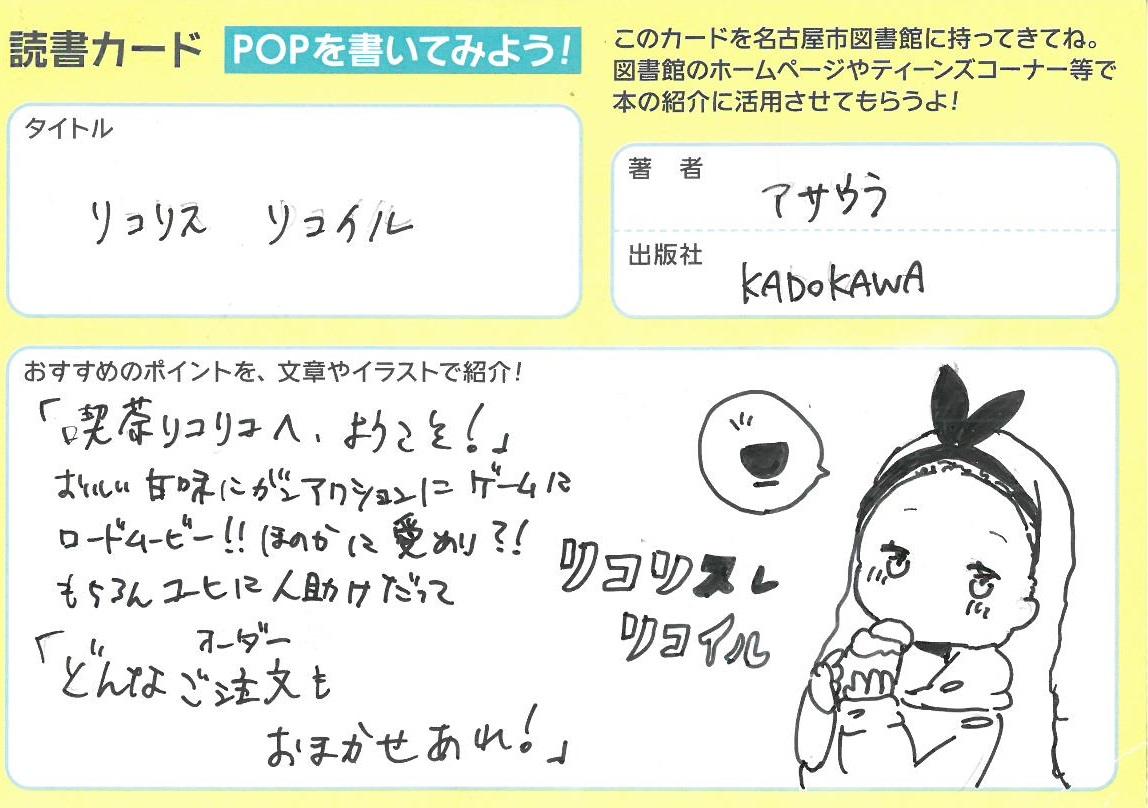 読書カード
POPを書いてみよう!
このカードを名古屋市図書館に持ってきてね。
図書館のホームページやティーンズコーナー等で
本の紹介に活用させてもらうよ!
タイトル
リコリス リコイル
著者
アサウラ
出版社
KADOKAWA
おすすめのポイントを、文章やイラストで紹介!
「喫茶リコリコへ、ようこそ!」
おいしい甘味にガンアクションにゲームに
ロードムービー!!ほのかに愛あり?!
もちろんコーヒーに人助けだって
オーダー
「どんなご注文も
おまかせあれ!」
リコリス
リコイル